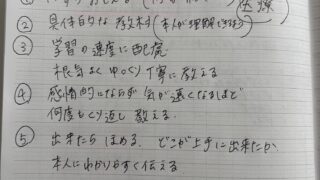 ② 具体的な教材(本人が理解できる)
③ 学習の速度に配慮
根気よくゆっくり丁寧に教える
④ 感情的にならず 気が遠くなるほど
何度もくり返し 教える.
⑤ 出来たら ほめる. どこが上手に出来たか.
本人にわかりやすく伝える.